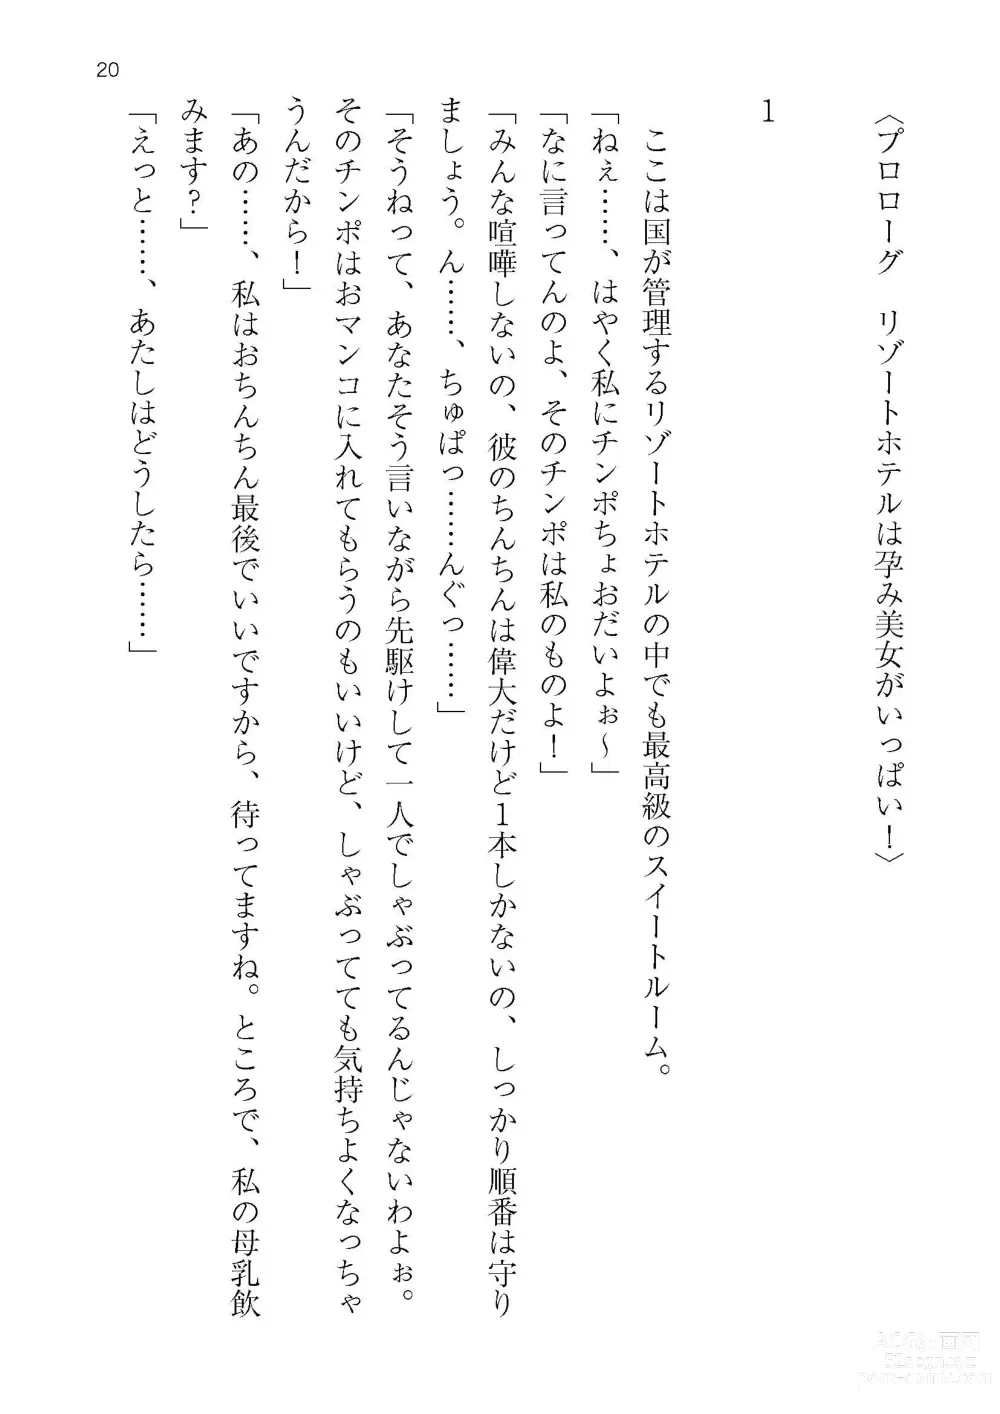 20
〈プロローグ　リゾートホテルは孕み美女がいっぱい！〉
1
ここは国が管理するリゾートホテルの中でも最高級のスイートルーム。
「ねぇ……、はやく私にチンポちょおだいよぉ～」
「なに言ってんのよ、そのチンポは私のものよ！」
「みんな喧嘩しないの、彼のちんちんは偉大だけど１本しかないの、しっかり順番は守り
ましょう。ん……、ちゅぱっ……んぐっ……」
「そうねって、あなたそう言いながら先駆けして一人でしゃぶってるんじゃないわよぉ。
そのチンポはおマンコに入れてもらうのもいいけど、しゃぶってても気持ちよくなっちゃ
うんだから！」
「あの……、私はおちんちん最後でいいですから、待ってますね。ところで、私の母乳飲
みます？」
「えっと……、あたしはどうしたら……」